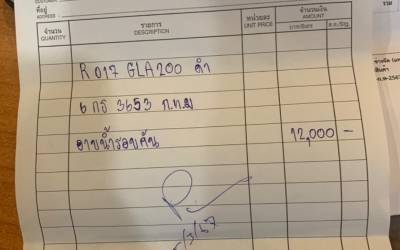 CUSTOMER
ที่อยู่
จำนวน รายการ หน่วยละ จำนวนเงิน
QUANTITY DESCRIPTION UNIT PRICE AMOUNT
R017 GLA200 ดำ
6 กร 3653 ก.ท.ม
อาบน้ำรอบคัน 12,000 -
/3/67
รวม